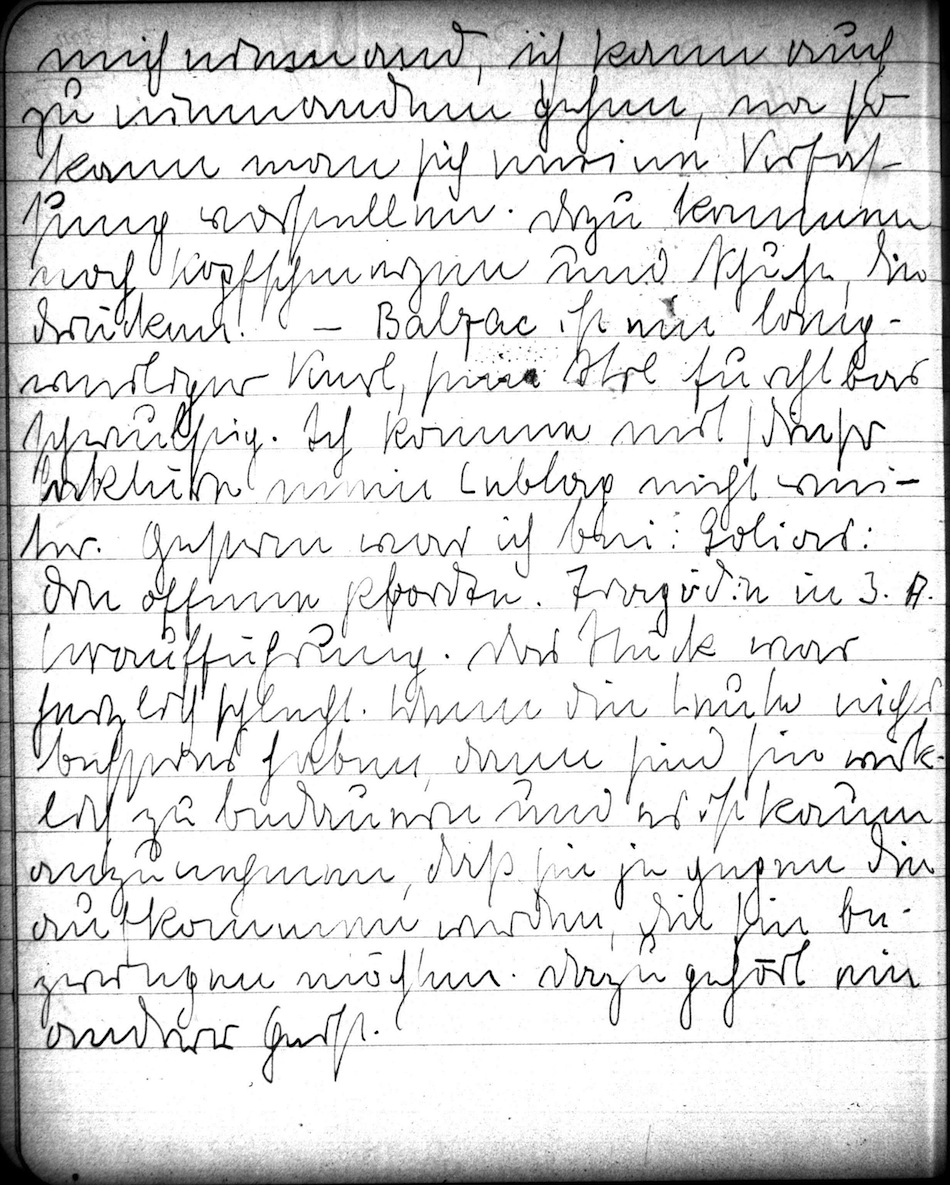 mich niemand, ich kann auch
zu niemandem gehen, na so
kann man sich meine Verfas-
sung vorstellen. Dazu kommen
noch Kopfschmerzen und Schuhe, die
drücken. – Balzac ist ein lang-
weiliger Kerl, sein Stil furchtbar
schwülstig. Ich komme mit dieser
Lektüre mein Lebtag nicht wei-
ter. Gestern war ich bei: Golias:
Die offenen Pforten. Tragödie in 3. A.
Uraufführung. Das Stück war
herzlich schlecht. Wenn die Leute nichts
besseres haben, dann sind sie wirk-
lich zu bedauern und es ist kaum
anzunehmen, daß sie je gegen die
aufkommen werden, die sie be-
zwingen möchten. Dazu gehört ein
anderer Geist.